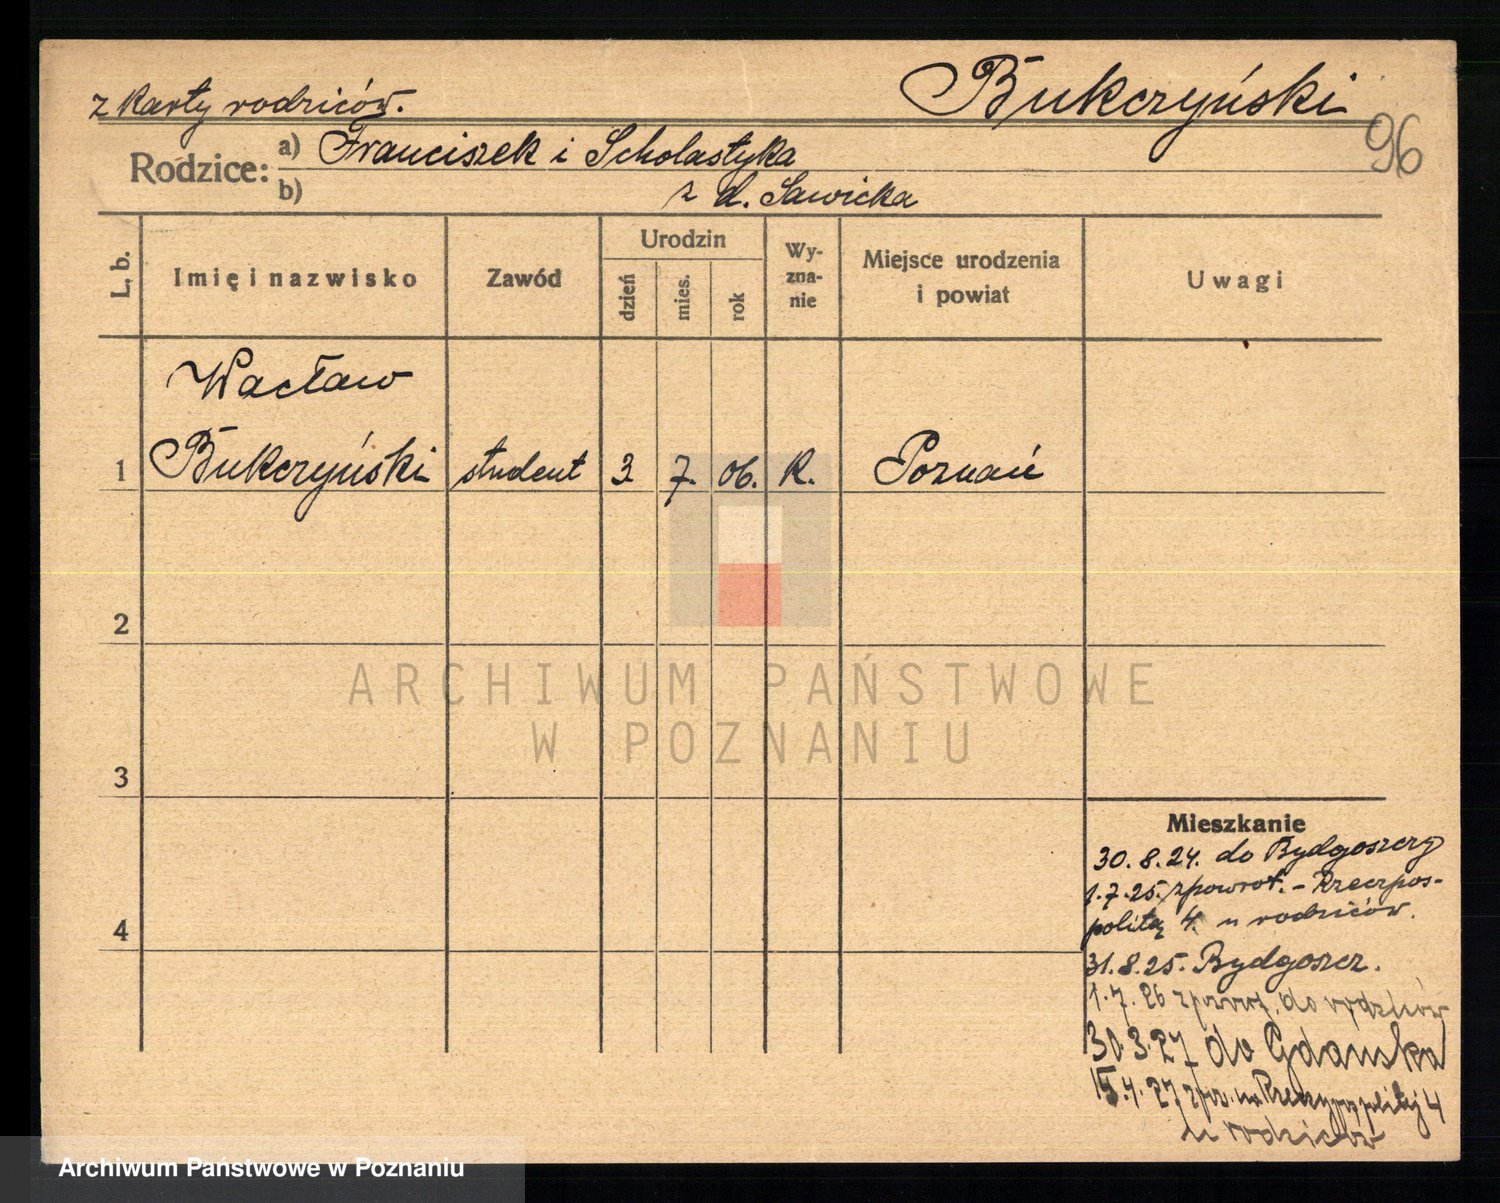 z karty rodziców.
Bukczyński
96
Rodzice: a) Franciszek i Scholastyka
b) z d. Sawicka
L. b.
Imię i nazwisko
Zawód
Urodzin
dzień
mies.
rok
Wy-
zna-
nie
Miejsce urodzenia
i powiat
Uwagi
Wacław
1 Bukczyński student 3. 7. 06. R. Poznań
2
ARCHIWUM PAŃSTWOWE
W POZNANIU
3
4
Mieszkanie
30.8.24. do Bydgoszczy
1.7.25. zpowrot. - Rzeczpos-
politą 4. u rodziców.
31.8.25. Bydgoszcz.
1.7.26 zpowrot. do rodziców
30.3.27 do Gdańska
15.4.27 zpow. na Rzeczypospolitej 4
u rodziców
Archiwum Państwowe w Poznaniu